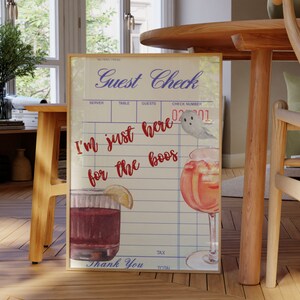 Guest Check
SERVER TABLE GUESTS CHECK NUMBER
I'm just here
for the boos
TAX
Thank You
TOTAL